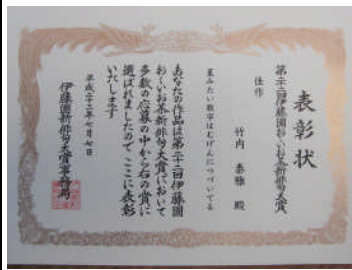 表彰状
第二十二回伊藤園おーいお茶新俳句大賞
佳作
竹内 泰雅 殿
星みたい数字はむげんにつづいてる
あなたの作品は第二十二回伊藤園
おーいお茶新俳句大賞において
多数の応募の中から右の賞に
選ばれましたので ここに表彰
いたします
平成二十三年七月七日
伊藤園新俳句大賞事務局